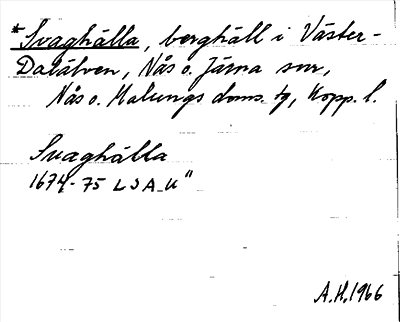 *Svaghälla, berghäll i Väster-
Dalälven, Nås o. Järna snr,
Nås o. Malungs doms. tg, Kopp. l.
Svaghälla
1674-75 LSA U"
A.H. 1966